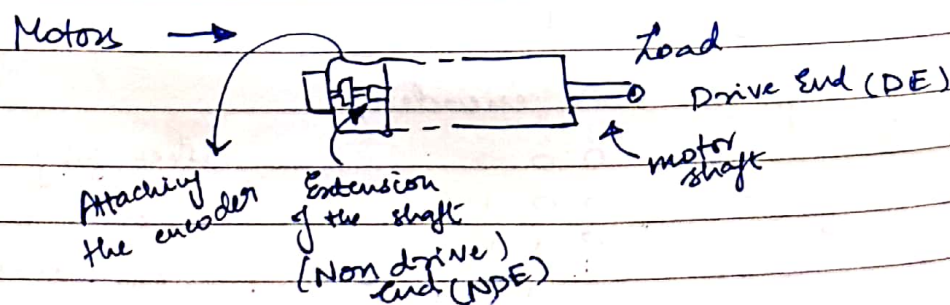 Motors →
Load
Drive End (DE)
motor
shaft
Attaching
the encoder
Extension
of the shaft
(Non drive)
End (NDE)